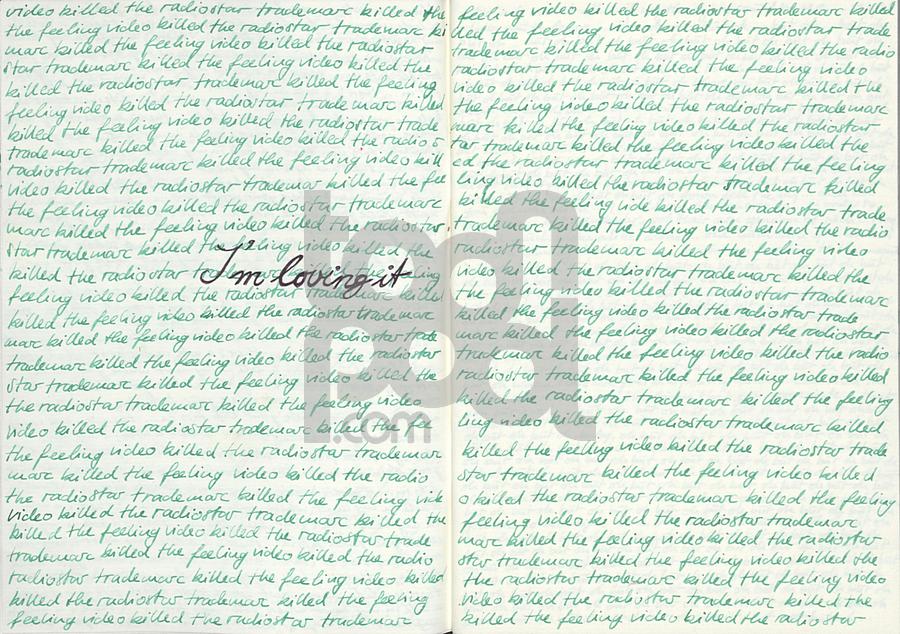 video killed the radiostar trademarc killed the
the feeling video killed the radiostar trademarc ki
marc killed the feeling video killed the radiostar
star trademarc killed the feeling video killed the
killed the radiostar trademarc killed the feeling
feeling video killed the radiostar trademarc killed
killed the feeling video killed the radiostar trade
trademarc killed the feeling video killed the radio s
radiostar trademarc killed the feeling video kill
video killed the radiostar trademarc killed the fee
the feeling video killed the radiostar trademarc
marc killed the feeling video killed the radiostar
star trademarc killed the feeling video killed the
I'm loving it
killed the radiostar trademarc killed the feeling
feeling video killed the radiostar trademarc killed
killed the feeling video killed the radiostar trademarc
marc killed the feeling video killed the radiostar trade
trademarc killed the feeling video killed the radiostar
star trademarc killed the feeling video killed the
the radiostar trademarc killed the feeling video
video killed the radiostar trademarc killed the fee
the feeling video killed the radiostar trademarc
marc killed the feeling video killed the radio
the radiostar trademarc killed the feeling vide
video killed the radiostar trademarc killed the
killed the feeling video killed the radiostar trade
trademarc killed the feeling video killed the radio
radiostar trademarc killed the feeling video killed
killed the radiostar trademarc killed the feeling
feeling video killed the radiostar trademarc
feeling video killed the radiostar trademarc killed
lled the feeling video killed the radiostar trade
trademarc killed the feeling video killed the radio
radiostar trademarc killed the feeling video
video killed the radiostar trademarc killed the
the feeling video killed the radiostar trademarc
marc killed the feeling video killed the radiostar
star trademarc killed the feeling video killed the
ed the radiostar trademarc killed the feeling
ling video killed the radiostar trademarc killed
killed the feeling video killed the radiostar trade
trademarc killed the feeling video killed the radio
radiostar trademarc killed the feeling video
video killed the radiostar trademarc killed the
the feeling video killed the radiostar trademarc
killed the feeling video killed the radiostar trade
marc killed the feeling video killed the radiostar
trademarc killed the feeling video killed the radio
radiostar trademarc killed the feeling video killed
killed the radiostar trademarc killed the feeling
ling video killed the radiostar trademarc killed
killed the feeling video killed the radiostar trade
star trademarc killed the feeling video killed
o killed the radiostar trademarc killed the feeling
feeling video killed the radiostar trademarc
marc killed the feeling video killed the radiostar
star trademarc killed the feeling video killed the
the radiostar trademarc killed the feeling video
video killed the radiostar trademarc killed the
killed the feeling video killed the radiostar
toonpool.com